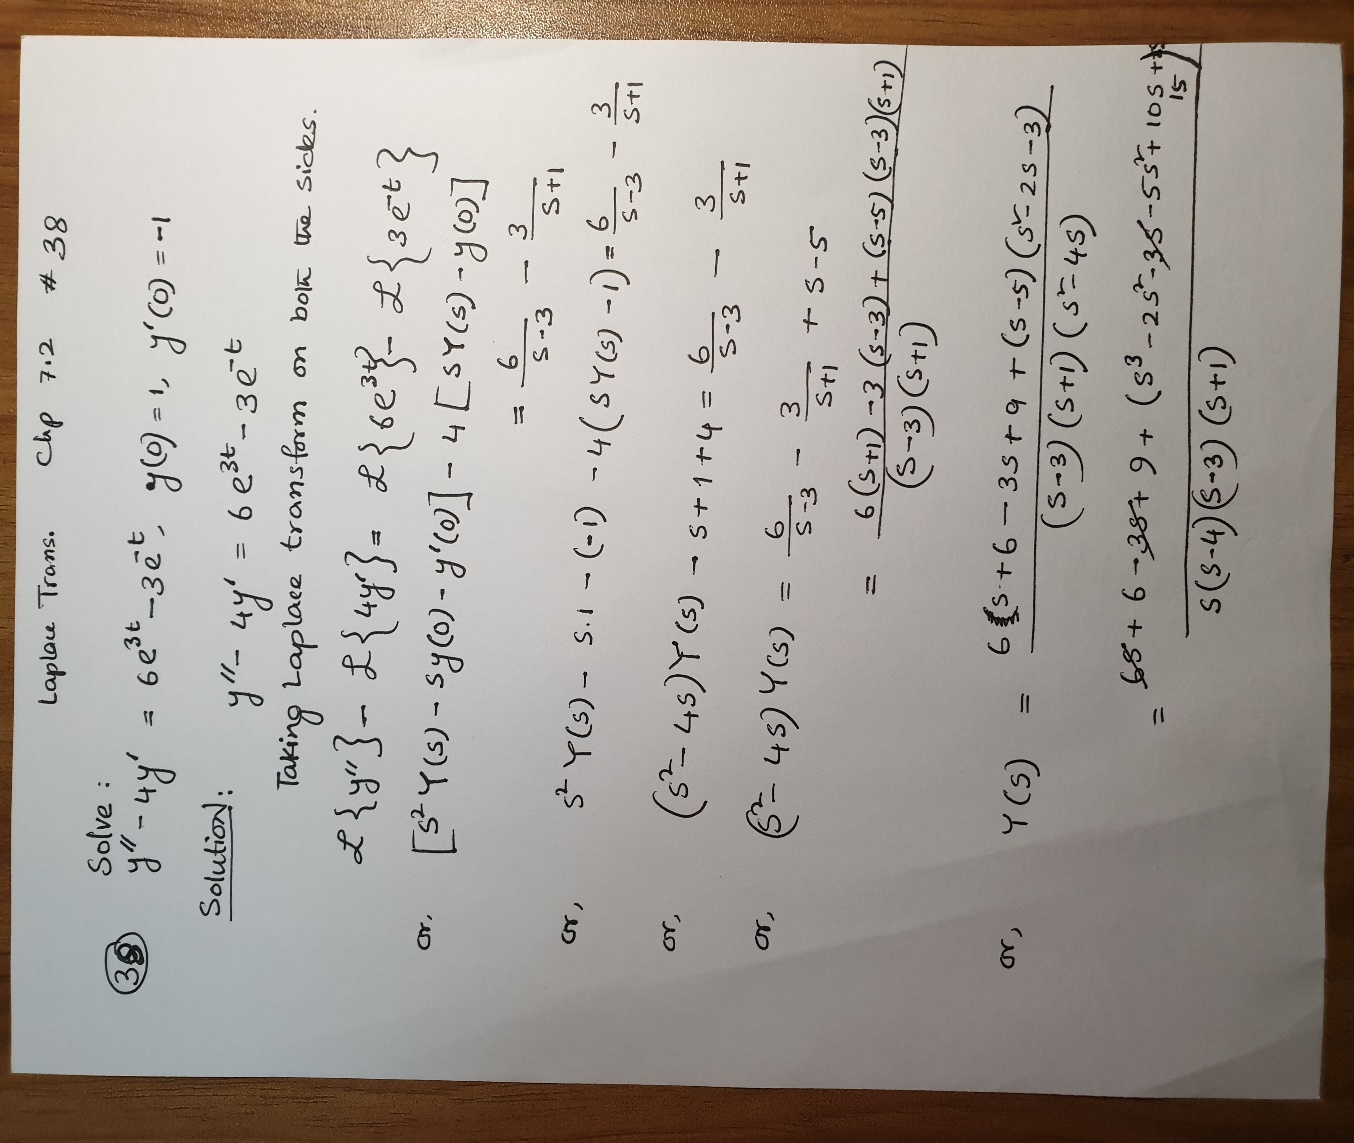 Laplace Trans. Chp 7.2 # 38
Solve :
(38) y'' - 4y' = 6e^{3t} - 3e^{-t}, y(0) = 1, y'(0) = -1
Solution:
y'' - 4y' = 6e^{3t} - 3e^{-t}
Taking Laplace transform on both the sides.
ℒ{y''} - ℒ{4y'} = ℒ{6e^{3t}} - ℒ{3e^{-t}}
or, [s² Y(s) - sy(0) - y'(0)] - 4[sY(s) - y(0)]
= 6/(s-3) - 3/(s+1)
or, s² Y(s) - s.1 - (-1) - 4(sY(s) - 1) = 6/(s-3) - 3/(s+1)
or, (s² - 4s)Y(s) - s + 1 + 4 = 6/(s-3) - 3/(s+1)
or, (s² - 4s) Y(s) = 6/(s-3) - 3/(s+1) + s - 5
= 6(s+1) - 3(s-3) + (s-5)(s-3)(s+1)
(s-3)(s+1)
or, Y(s) = 6s + 6 - 3s + 9 + (s-5)(s² - 2s - 3)
(s-3)(s+1)(s² - 4s)
= 6s + 6 - 3s + 9 + (s³ - 2s² - 3s - 5s² + 10s + 15)
s(s-4)(s-3)(s+1)